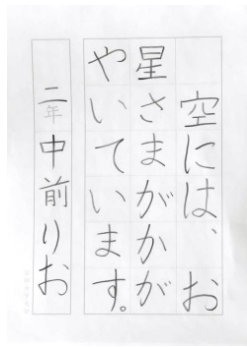 空には、お
星さまがかが
やいています。
二年 中前りお